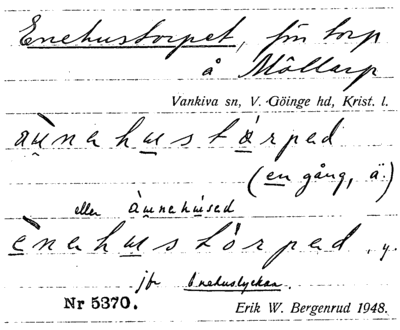 Enehustorpet, fin torp
å Möllarp
Vankiva sn, V. Göinge hd, Krist. l.
au̯nahustårpad
(en gång, ä.)
eller àu̯nahùsad
ènahustòrpad. y.
jfr Enehuslyckan.
Nr 5370.
Erik W. Bergenrud 1948.